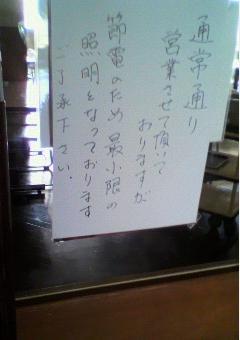 通常通り
営業させて頂いて
おりますが
節電のため最小限の
照明となっております
ご了承下さい.